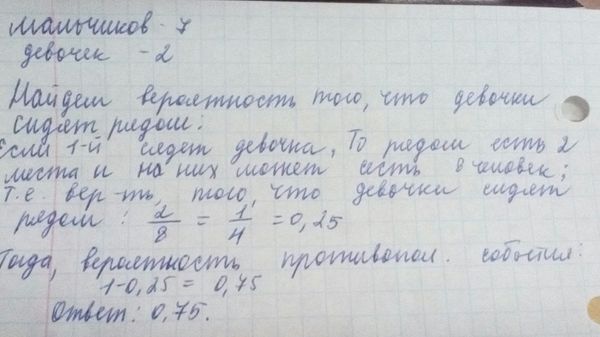 мальчиков - 7
девочек - 2
Найдем вероятность того, что девочки
сидят рядом:
Если 1-й сядет девочка, То рядом есть 2
места и на них может сесть 8 человек;
т.е. вер-ть, того, что девочки сидят
рядом: 2/8 = 1/4 = 0,25
Тогда, вероятность противопол. события:
1-0,25 = 0,75
Ответ: 0,75.